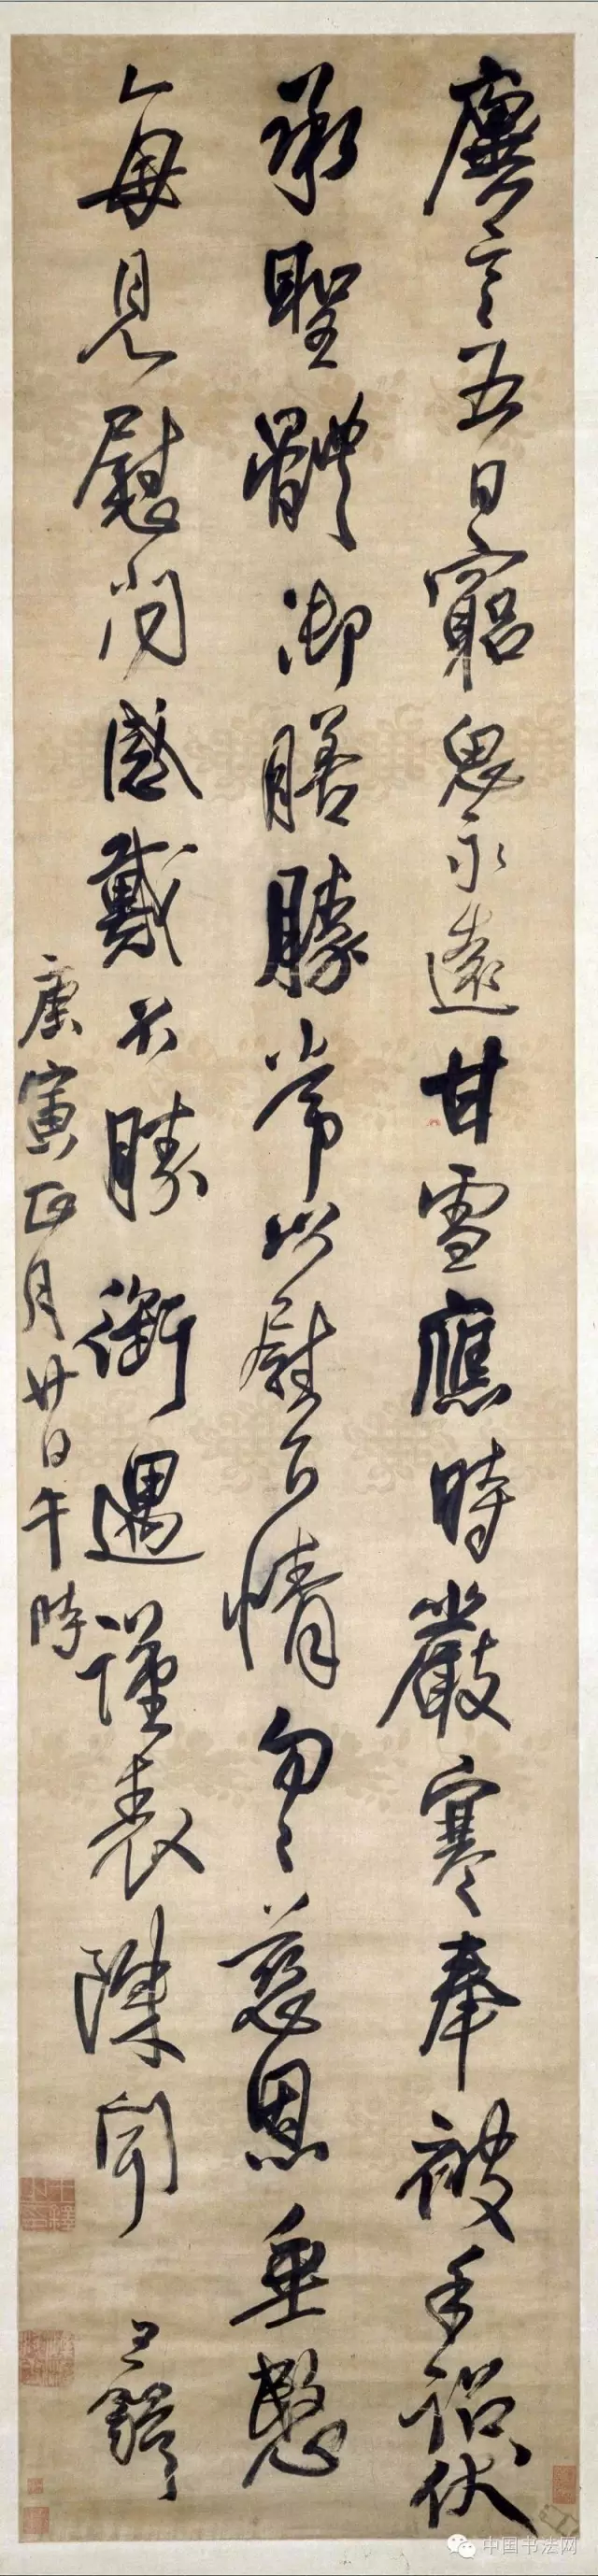 廙言五日窮思永遠甘雪應時嚴寒奉被手詔伏
承聖體御膳勝常以慰下情勿〻慈恩垂愍
每見慰問感戴不勝銜遇謹表陳聞 王鐸
庚寅正月廿日午時
中国书法网